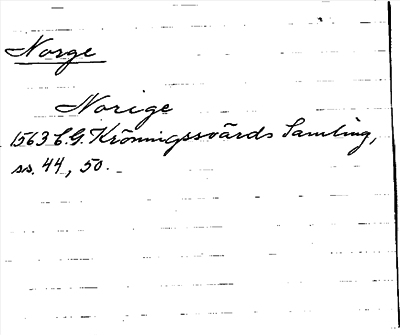 Norge
Norige
1563 C.G. Krönningssvärds Samling,
ss. 44, 50.